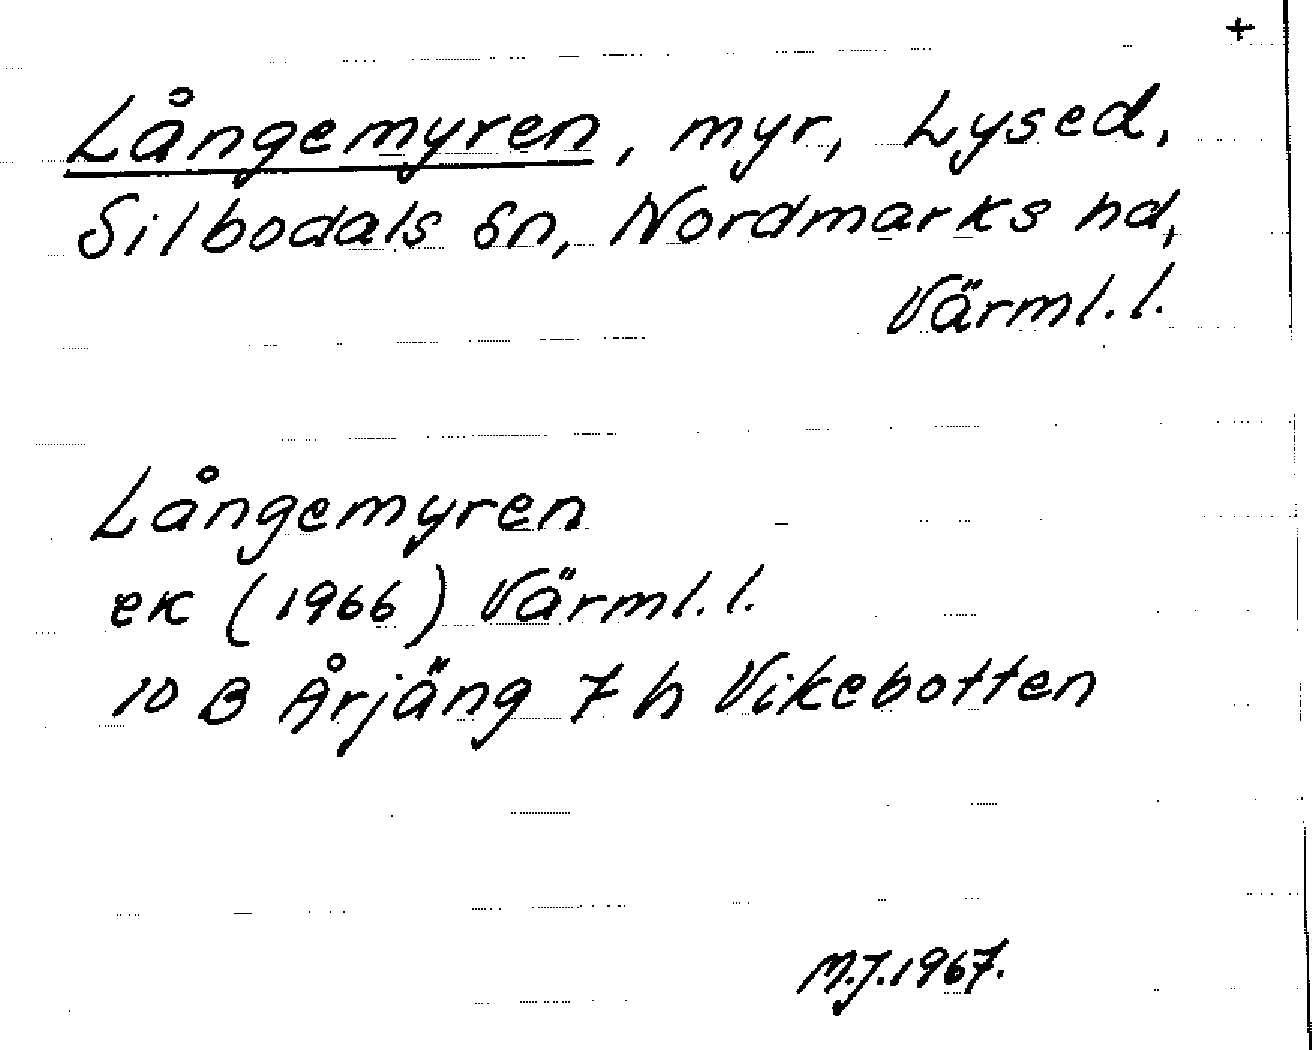 +
Långemyren, myr, Lysed,
Silbodals sn, Nordmarks hd,
Värml. l.
Långemyren
ek (1966) Värml. l.
10 B Årjäng 7 h Vikebotten
M.J. 1967.